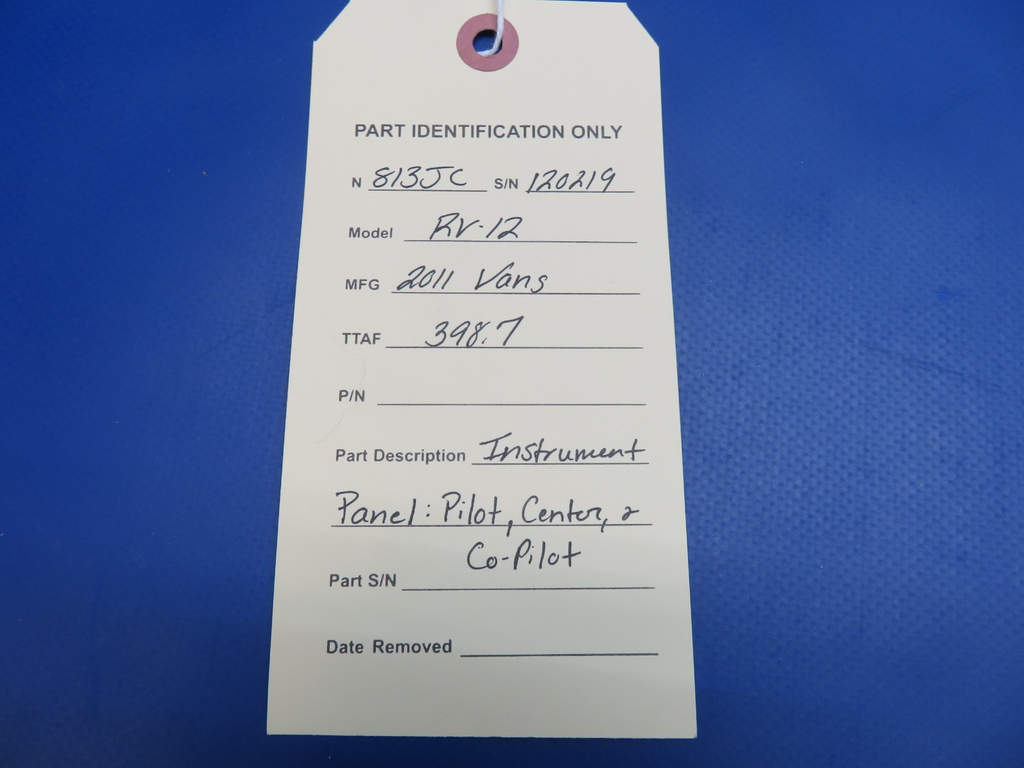 PART IDENTIFICATION ONLY
N 813JC S/N 120219
Model RV-12
MFG 2011 Vans
TTAF 398.7
P/N
Part Description Instrument
Panel: Pilot, Center, &
Co-Pilot
Part S/N
Date Removed